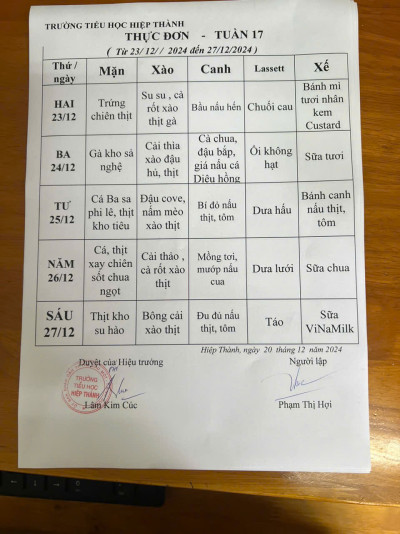 TRƯỜNG TIỂU HỌC HIỆP THÀNH
THỰC ĐƠN - TUẦN 17
( Từ 23/12/ / 2024 đến 27/12/2024 )
Thứ / ngày Mặn Xào Canh Lassett Xế
HAI 23/12
Trứng chiên thịt
Su su , cà rốt xào thịt gà
Bầu nấu hến
Chuối cau
Bánh mì tươi nhân kem Custard
BA 24/12
Gà kho sả nghệ
Cải thìa xào đậu hủ, thịt
Cà chua, đậu bắp, giá nấu cá Diêu hồng
Ổi không hạt
Sữa tươi
TƯ 25/12
Cá Ba sa phi lê, thịt kho tiêu
Đậu cove, nấm mèo xào thịt
Bí đỏ nấu thịt, tôm
Dưa hấu
Bánh canh nấu thịt, tôm
NĂM 26/12
Cá, thịt xay chiên sốt chua ngọt
Cải thảo , cà rốt xào thịt
Mồng tơi, mướp nấu cua
Dưa lưới
Sữa chua
SÁU 27/12
Thịt kho su hào
Bông cải xào thịt
Đu đủ nấu thịt, tôm
Táo
Sữa ViNaMilk
Hiệp Thành, ngày 20 tháng 12 năm 2024
Duyệt của Hiệu trưởng Người lập
TRƯỜNG
TIỂU HỌC
HIỆP THÀNH
Lâm Kim Cúc Phạm Thị Hợi